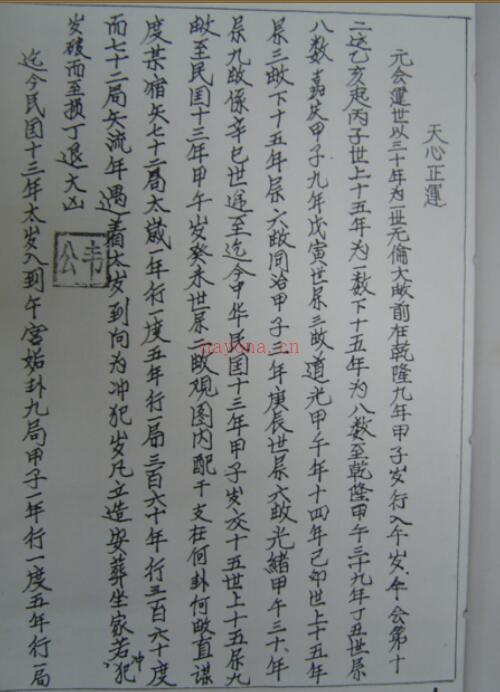 天心正運
元会運世以三十年为一世无倫大畝前在乾隆九年甲子岁行入午岁午会第十
二运乙亥起丙子世上十五年为一数下十五年为八数至乾隆甲午三十九年丁丑世屬
八数嘉慶甲子九年戊寅世屬三畝道光甲午年十四年己卯世上十五年
屬三畝下十五年屬六畝同治甲子三年庚辰世屬六畝光緒甲午三十年
屬九畝係辛巳世遞至迄今中华民国十三年甲子岁交十五世上十五屬九
畝至民国十三年甲午岁癸未世屬二畝观图内配干支在何卦何畝直谋
度某宿矢七十二局太歲一年行一度五年行一局三百六十年行三百六十度
而七十二局矢流年遇着太岁到向为冲犯岁凡立造安葬坐家若犯冲
岁破而至损丁退大凶
韦公
迄今民国十三年太岁入到午宫姤卦九局甲子一年行一度五年行一局
nayona.cn